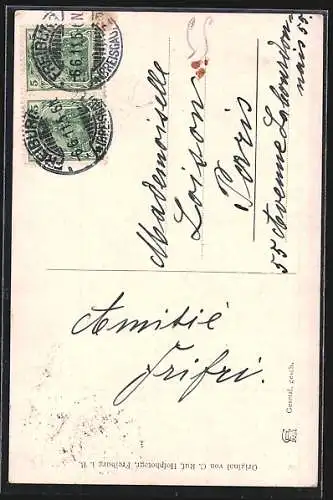 5 5
FREIBURG
6.6.11.5-6N
Mademoiselle
Loison
Paris
55 Avenue Labourdon-
nais 55.
Amitié
Frifri.
Original von C. Ruf, Hofphotogr. Freiburg i. B.
General. gesch.